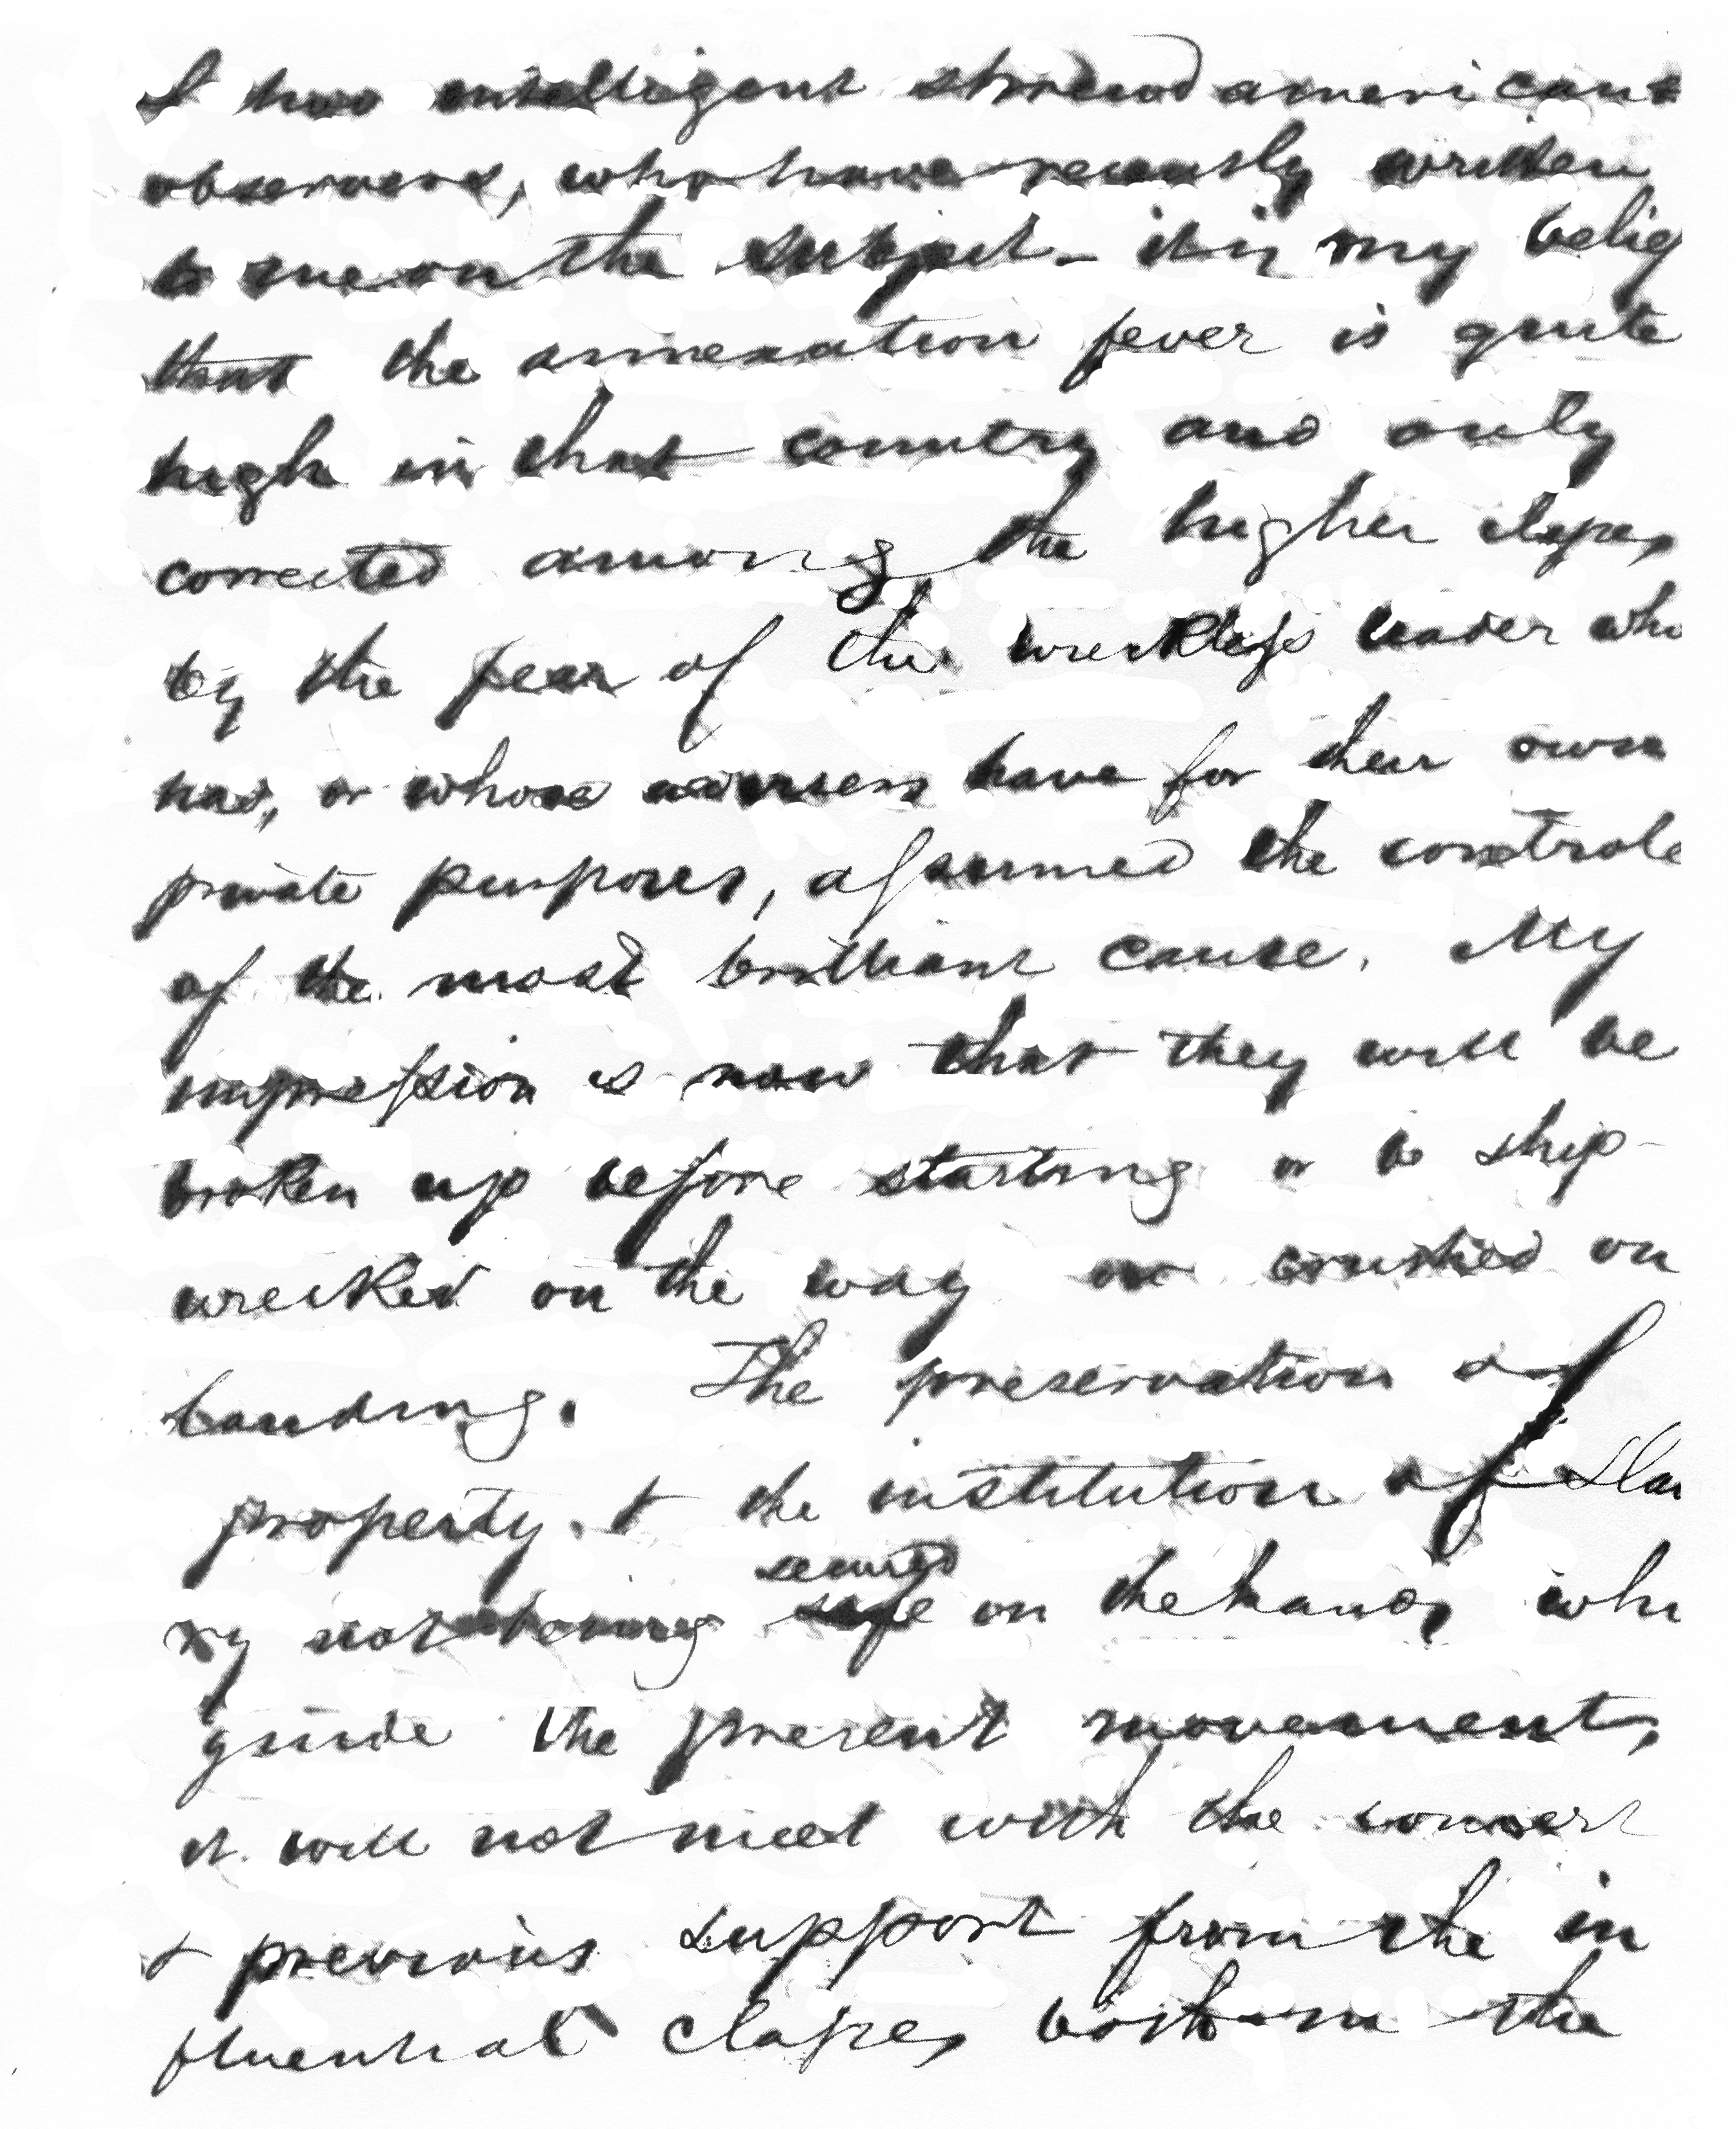 & two intelligent shrewd americans
observers, who have recently written
to me on the subject - it is my belief
that the annexation fever is quite
high in that country and only
corrected among the higher classes
by the fear of the wreckless leader who
has, or whose advisers have for their own
private purposes, assumed the controle
of the most brilliant cause. My
impression is now that they will be
broken up before starting or be ship-
wrecked on the way or crushed on
landing. The preservation of
property. & the institution of Slav
ry not being secured safe on the hands who
guide the present movement,
it will not meet with the consent
& previous support from the in
fluential classes both in the